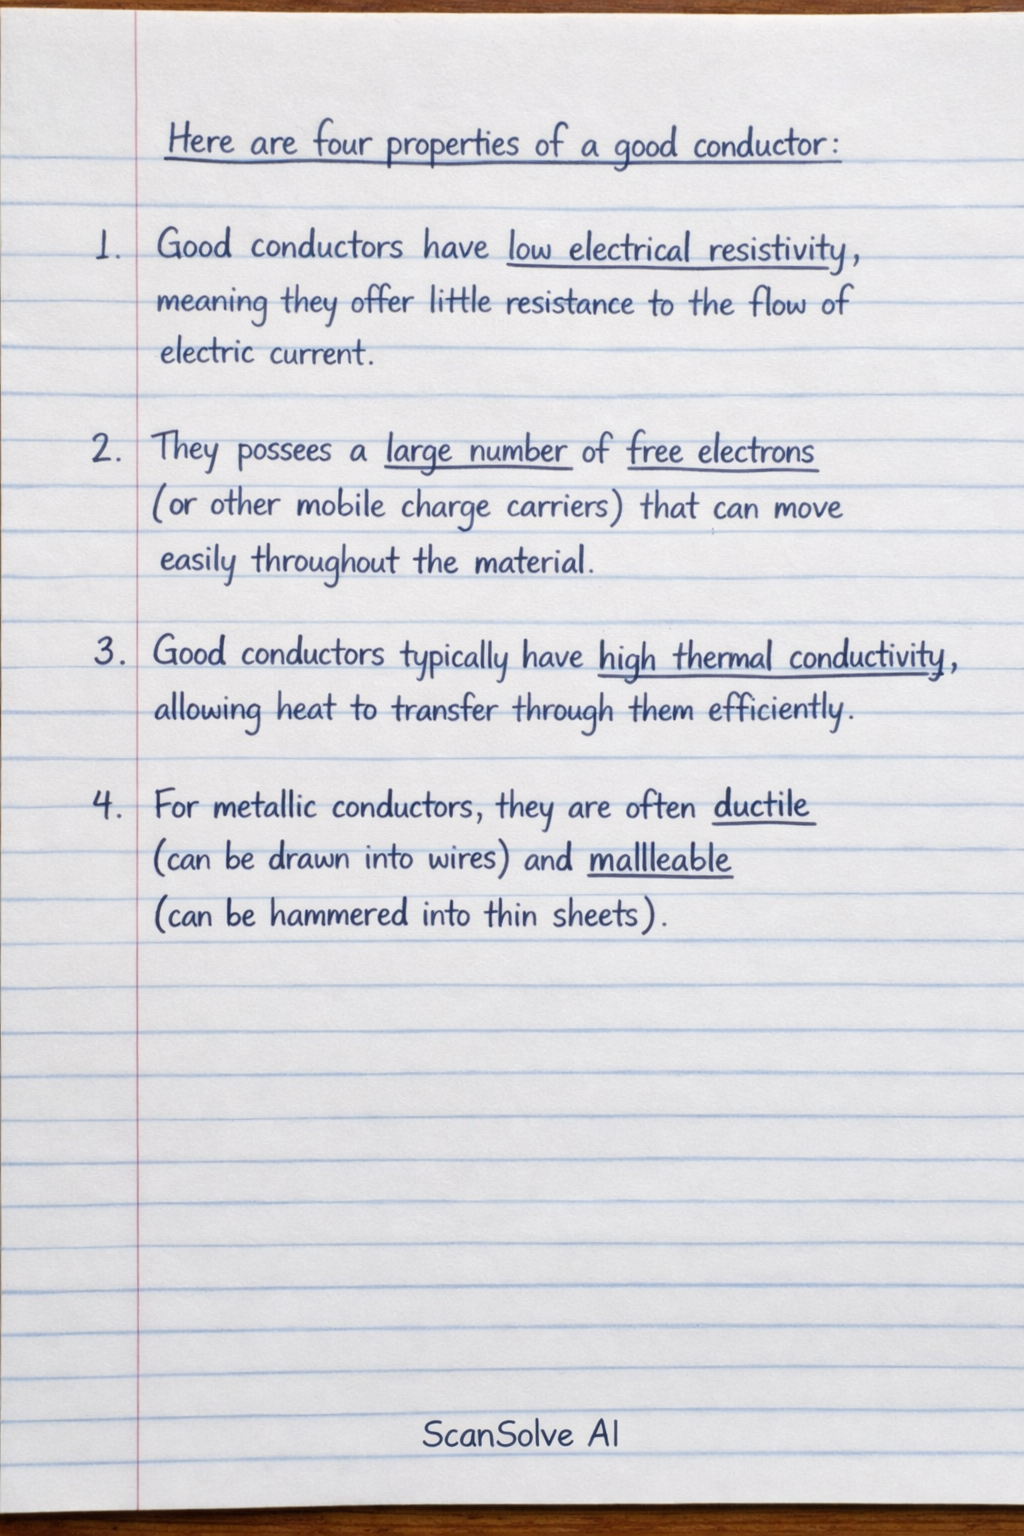 Here are four properties of a good conductor:
1. Good conductors have low electrical resistivity,
meaning they offer little resistance to the flow of
electric current.
2. They possees a large number of free electrons
(or other mobile charge carriers) that can move
easily throughout the material.
3. Good conductors typically have high thermal conductivity,
allowing heat to transfer through them efficiently.
4. For metallic conductors, they are often ductile
(can be drawn into wires) and mallleable
(can be hammered into thin sheets).
ScanSolve AI